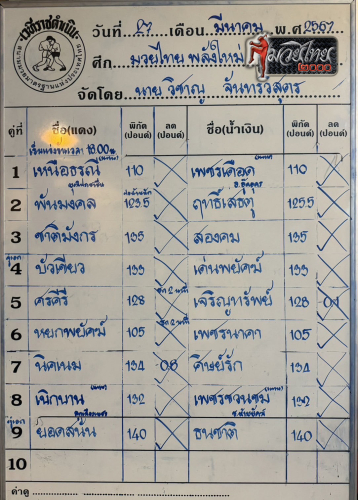 เวทีราชดำเนิน
วันที่ 27 เดือน มีนาคม พ.ศ 2567
ศึก มวยไทย พลังใหม่
มวยไทย ๒๐๐๐
จัดโดย นาย วิชาญ จันทรวิสูตร
คู่ที่ ชื่อ(แดง) พิกัด (ปอนด์) ลด (ปอนด์) ชื่อ(น้ำเงิน) พิกัด (ปอนด์) ลด (ปอนด์)
เริ่มแข่งขันเวลา 18.00 น
1 เหนือธรณี 110 เพชรเดือด 110
2 พันมงคล 123.5 ฤทธิ์เสธตุ 125.5
3 ชาติมังกร 135 สองคม 135
คู่เอก
4 บัวเขียว 133 เด่นพยัคฆ์ 133
5 ศรคีรี 128 เจริญทรัพย์ 128 0.1
6 หยกพยัคฆ์ 105 เพชรนาคา 105
7 นิคเนม 134 0.8 ศิษย์รัก 134
8 เบิกบาน 132 เพชรชวนชม 132
คู่เอก
9 ยอดสนั่น 140 ธนชาติ 140
10
ค่าดู